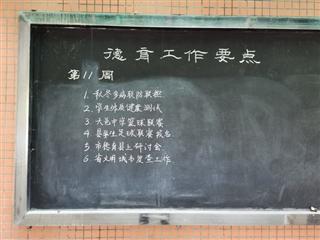 德育工作要点
第11周
1. 秋冬多病联防联控
2. 学生体质健康测试
3. 大邑中学篮球联赛
4. 县学生足球联赛报名
5. 市德育县上研讨会
6. 省文明城市复查工作